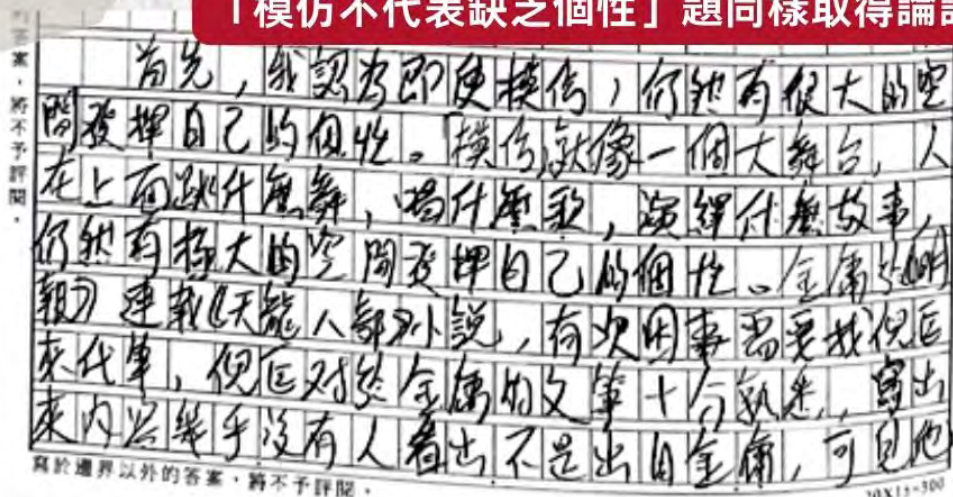 「模仿不代表缺乏個性」題同樣取得論
案，將不予評閱。
首先，我認為即使模仿，仍然有很大的空
間發揮自己的個性。「模仿」就像一個大舞台，人
在上面跳什麼舞，唱什麼歌，演繹什麼故事，
仍然有極大的空間發揮自己的個性。金庸於《明
報》連載《天龍八部》小說，有次因事需要找倪匡
來代筆，倪匡對於金庸的文筆十分熟悉，寫出
來內容幾乎沒有人看出不是出自金庸，可見他
寫於邊界以外的答案，將不予評閱。
20X15=300